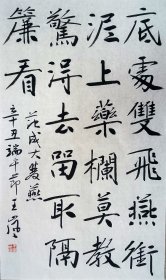 底處雙飛燕銜
泥上藥欄莫教
驚得去留取隔
簾看
范成大雙燕
辛丑端午節王